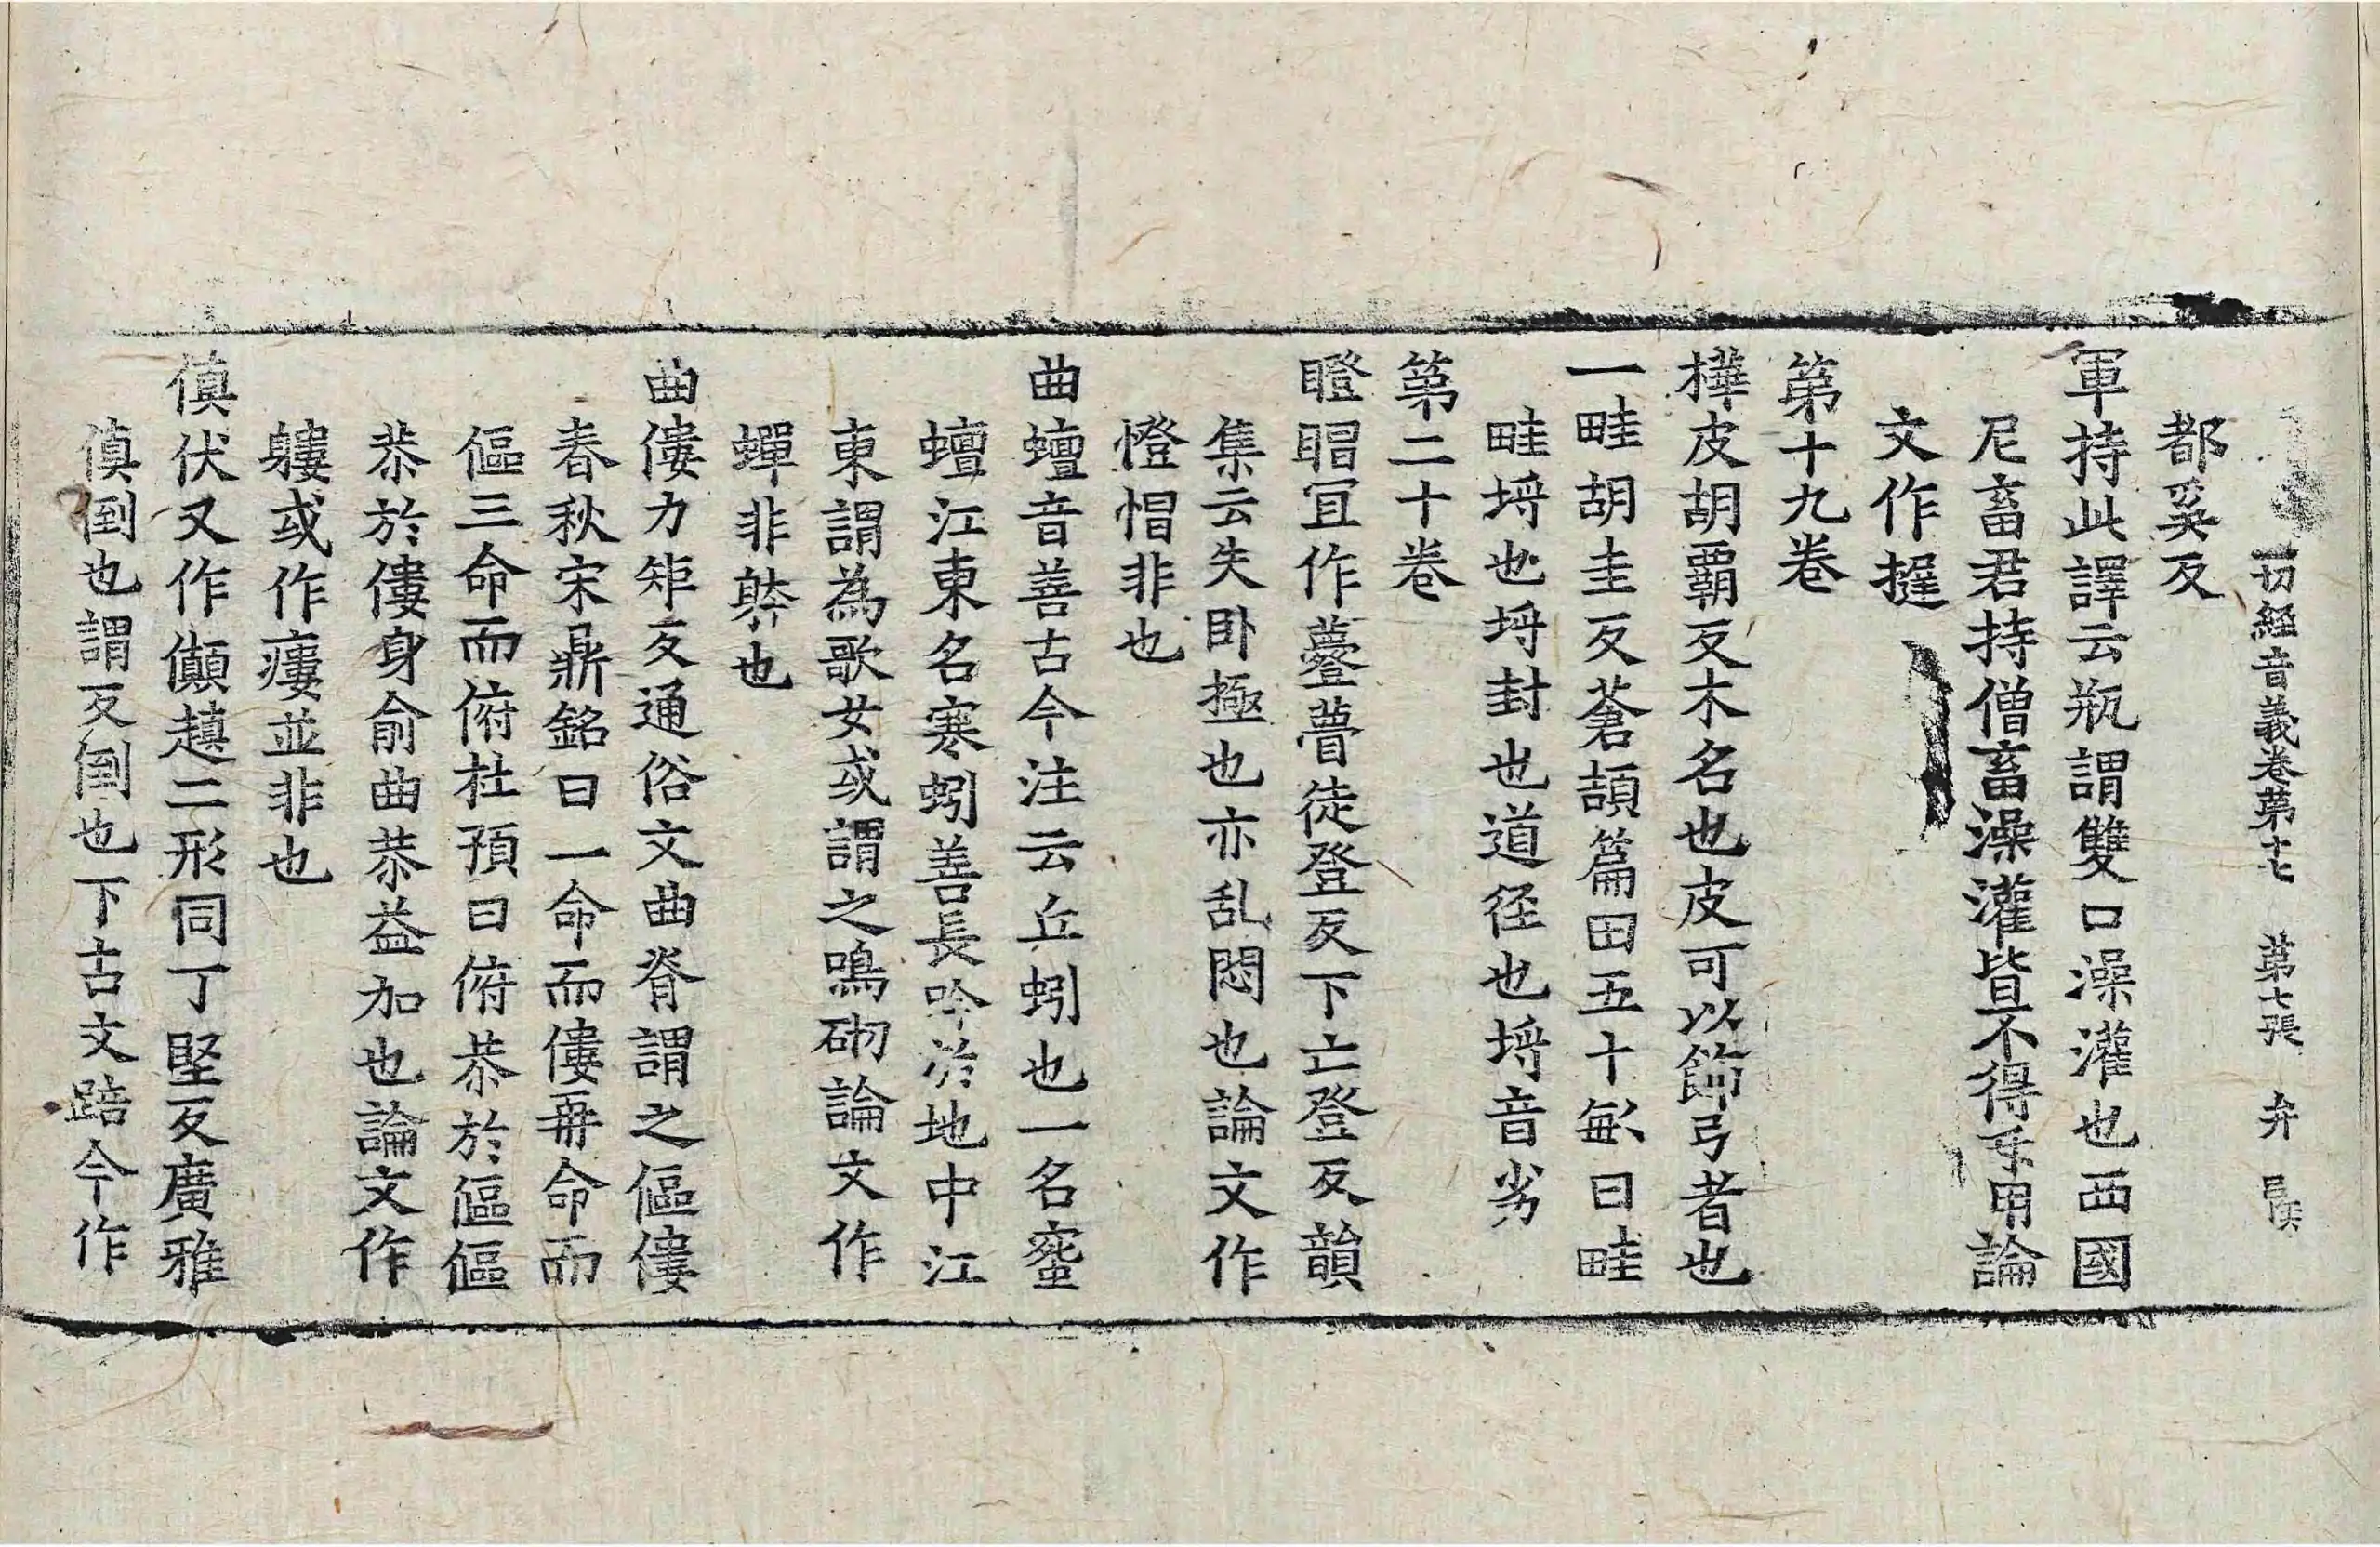 切經音義卷第十七 第七張 弁
都奚反
軍持此譯云瓶謂雙口澡灌也西國
尼畜君持僧畜澡灌皆不得手用論
文作㨗
第十九卷
樺皮胡霸反木名也皮可以飾弓者也
一畦胡圭反蒼頡篇田五十畝曰畦
畦埒也埒封也道径也埒音劣
第二十卷
瞪䁅冝作䠬瞢徒登反下亡登反韻
集云失卧極也亦乱悶也論文作
憕㥠非也
曲蟺音善古今注云丘蚓也一名蜜
蟺江東名寒蚓善長吟於地中江
東謂為歌女或謂之鳴砌論文作
蟬非躰也
曲僂力矩反通俗文曲脊謂之傴僂
春秋宋鼎銘曰一命而僂再命而
傴三命而俯杜預曰俯恭於傴傴
恭於僂身俞曲恭益加也論文作
軁或作瘻並非也
傎伏又作儎趚二形同丁堅反廣雅
傎倒也謂反倒也下古文踣今作